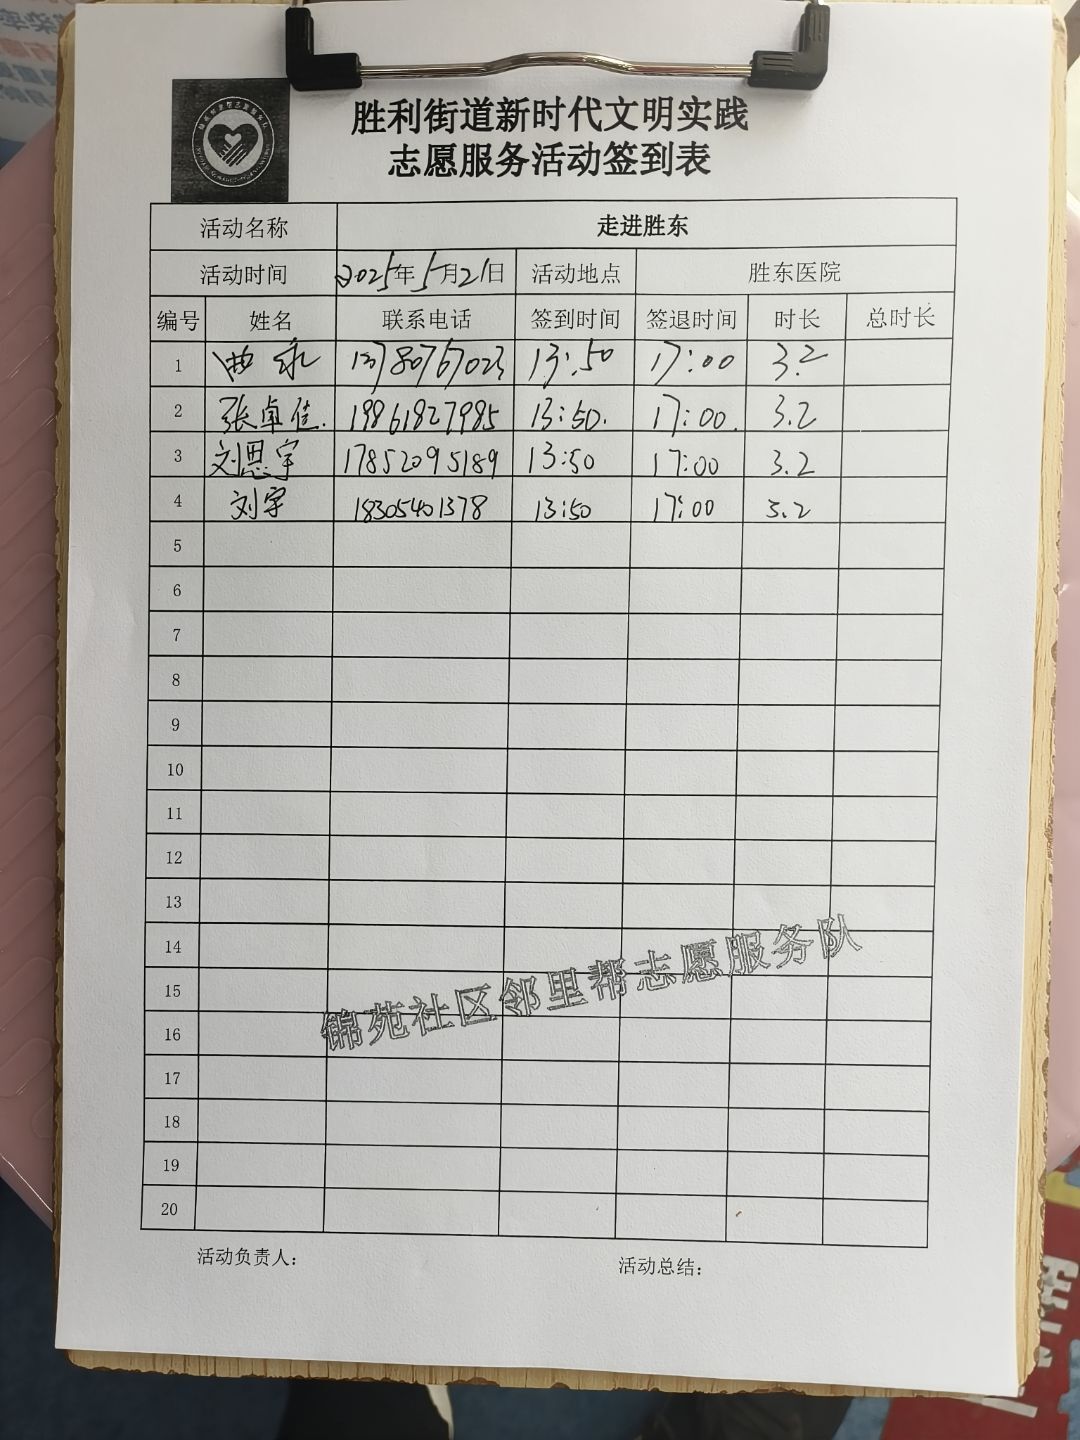 胜利街道新时代文明实践
志愿服务活动签到表
活动名称 走进胜东
活动时间 2025年5月21日 活动地点 胜东医院
编号 姓名 联系电话 签到时间 签退时间 时长 总时长
1 曲永 13780767023 13:50 17:00 3.2
2 张卓佳. 19861827985 13:50. 17:00. 3.2
3 刘思宇 17852095189 13:50 17:00 3.2
4 刘宇 18305401378 13:50 17:00 3.2
5
6
7
8
9
10
11
12
13
14
15
16
17
18
19
20
锦苑社区邻里帮志愿服务队
活动负责人： 活动总结：